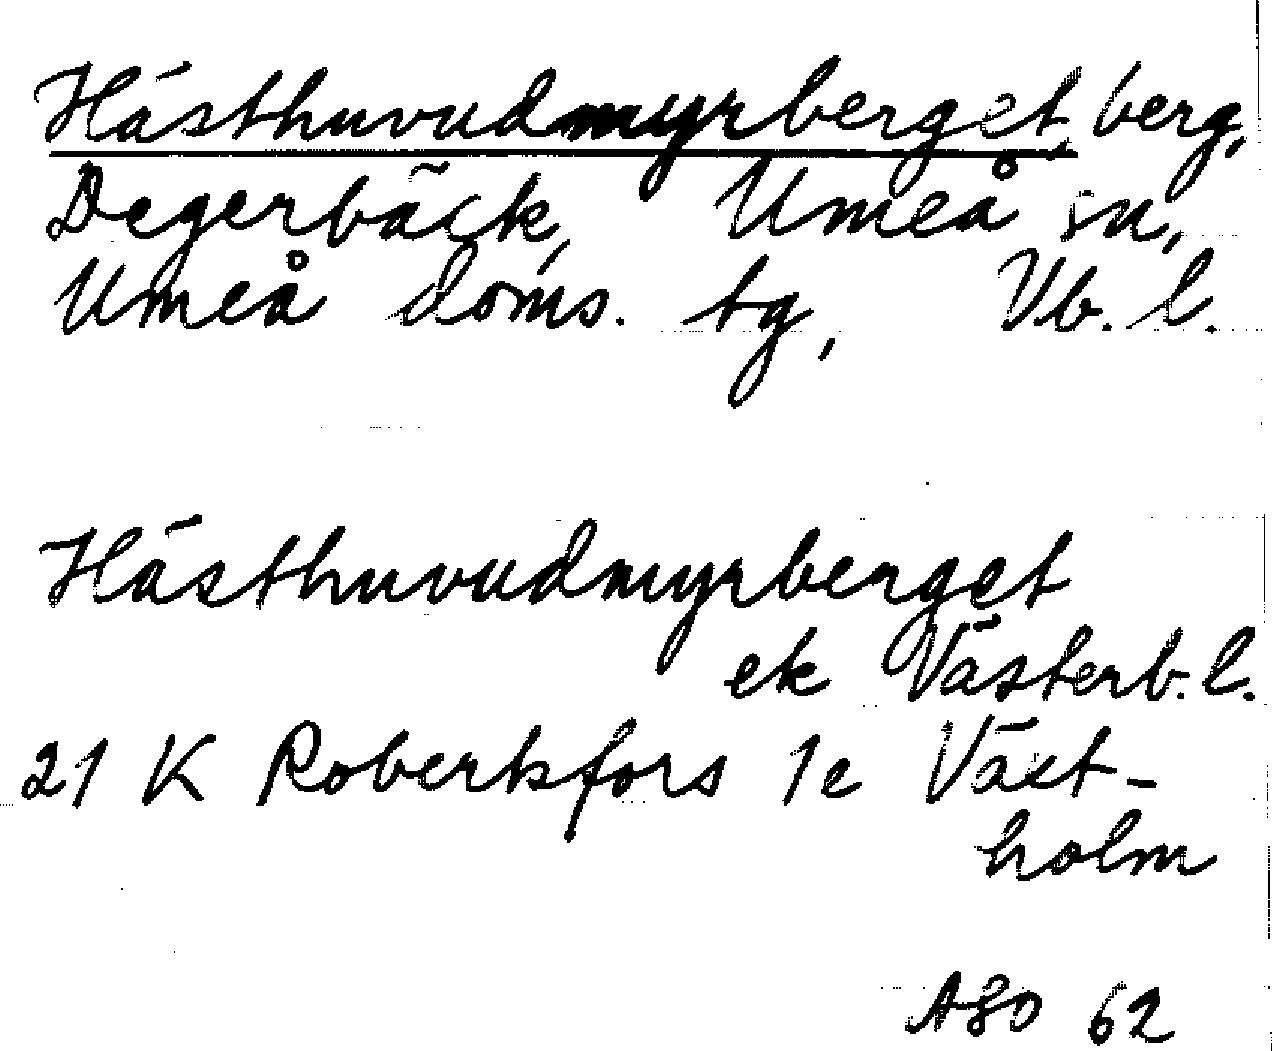 Hästhuvudmyrberget, berg,
Degerbäck, Umeå sn,
Umeå doms. tg, Vb. l.
Hästhuvudmyrberget
ek Västerb. l.
21 K Robertsfors 1e Väst-
holm
ASO 62